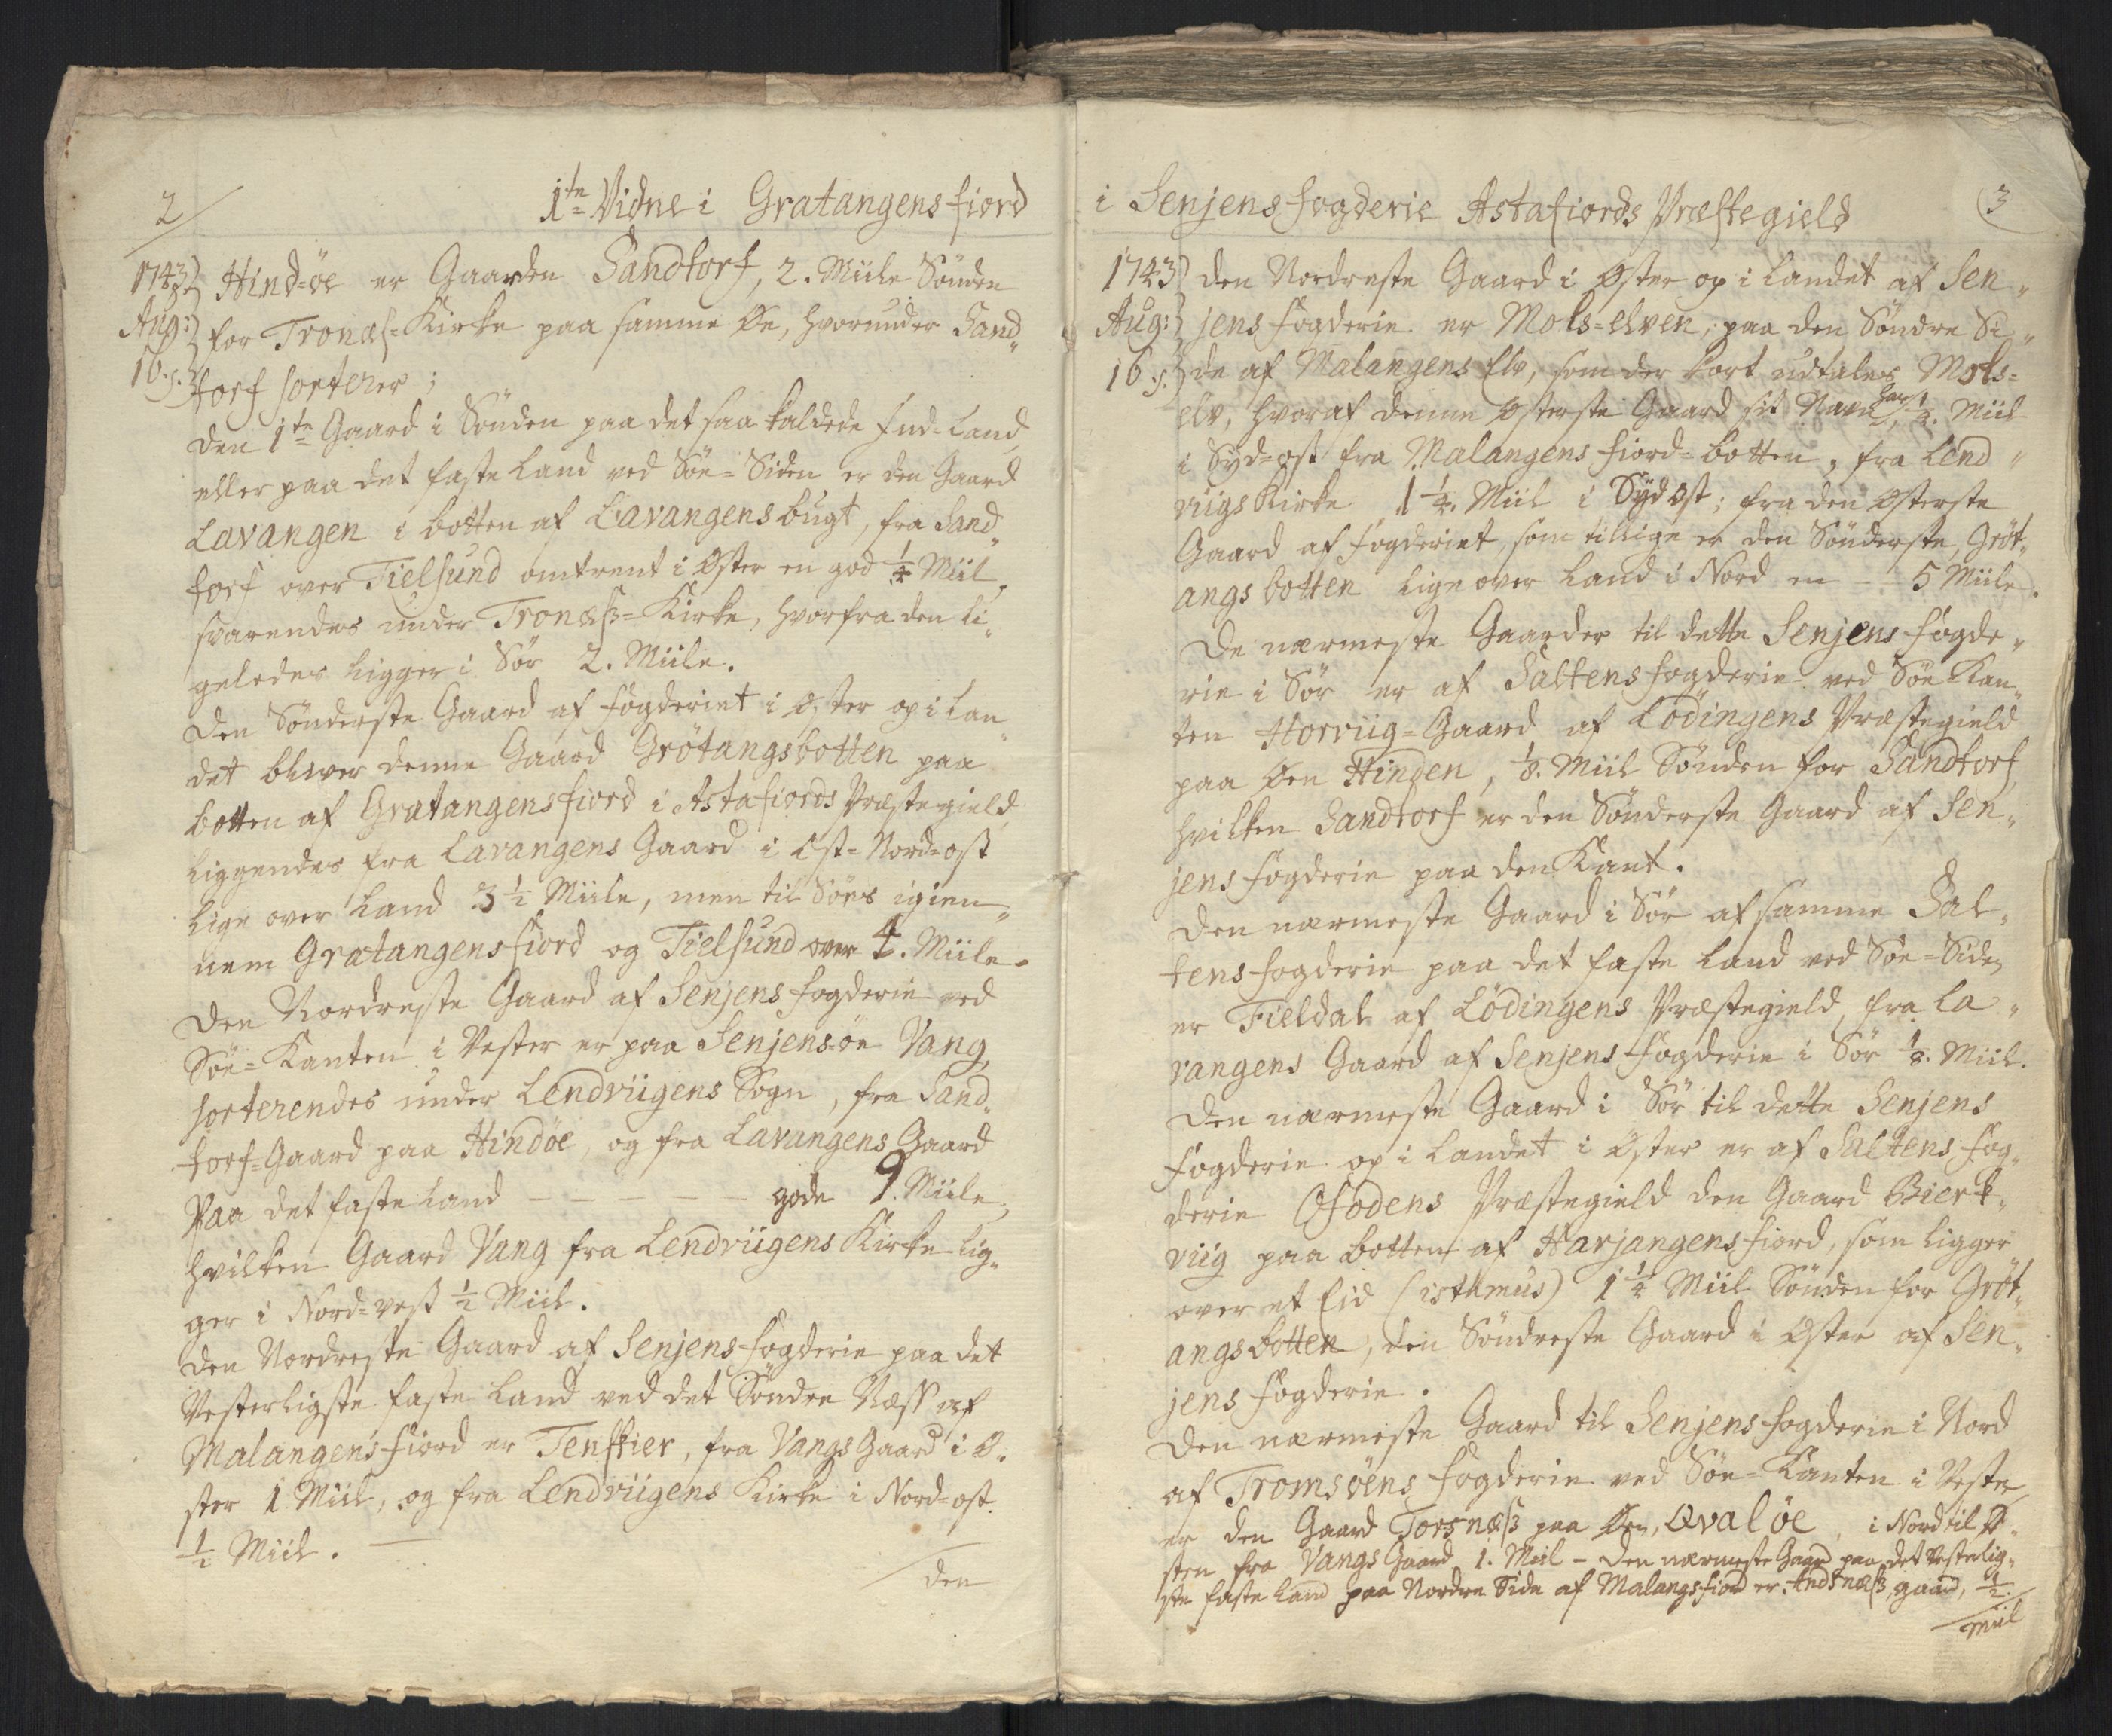 2
1te Vidne i Gratangens fiord
1743
Aug:
16.s.
Hind-öe er Gaarden Sandtorf, 2. Miile Sönden
for Tronæs-Kirke paa samme Øe, hvorunder Sand„
torf sorterer;
Den 1te Gaard i Sönden paa det saa kaldede Ind-Land
eller paa det faste Land ved Söe-Siden er den Gaard
Lavangen i botten af Lavangens bugt, fra Sand„
torf over Tielsund omtrent i Øster en god 1/4 Miil,
svarendes under Tronæß-Kirke, hvorfra den li„
geledes ligger i Sör 2. Miile.
Den Sönderste Gaard af Fogderiet i Øster op i Lan„
det bliver denne Gaard Grötangsbotten paa
botten af Gratangens fiord i Astafiords Præstegield
liggendes fra Lavangens Gaard i Ost-Nord-ost
lige over Land 3 1/2 Miile, men til Söes igien„
nem Gratangens fiord og Tielsund over 4. Miile.
Den Nordreste Gaard af Senjens Fogderie ved
Söe-Kanten i Vester er paa Senjens-öe Vang,
sorterendes under Lendviigens Sogn, fra Sand„
torf-Gaard paa Hindöe, og fra Lavangens Gaard
Paa det faste Land — — — — — gode 9. Miile;
hvilken Gaard Vang fra Lendviigens Kirke lig„
ger i Nord-vest 1/2 Miil.
Den Nordreste Gaard af Senjens Fogderie paa det
Vesterligste faste Land ved det Söndre Næss af
Malangens fiord er Tenskier, fra Vangs Gaard i Ø„
ster 1 Miil, og fra Lendviigens Kirke i Nord-ost
1/2 Miil. —
den
i Senjens Fogderie Astafiords Præstegield
3
1743
Aug:
16.s.
Den Nordreste Gaard i Øster op i Landet af Sen„
jens Fogderie er Mols-elven, paa den Söndre Si„
de af Malangens Elv, som der kort udtales Mols-
elv, hvoraf denne Østerste Gaard sit Navn har, 1/4. Miil
i Syd-ost fra Malangens fiord-botten, fra Lend„
viigs Kirke 1 1/4. Miil i Sydost; fra den Østerste
Gaard af Fogderiet, som tillige er den Sönderste, Gröt„
angs botten lige over Land i Nord en — 5 Miile.
De nærmeste Gaarder til dette Senjens Fogde„
rie i Sör er af Saltens Fogderie ved Söe Kan„
ten Horviig-Gaard af Lödingens Præstegield
paa Øen Hinden, 1/8. Miil Sönden for Sandtorf,
hvilken Sandtorf er den Sönderste Gaard af Sen„
jens Fogderie paa den Kant.
Den nærmeste Gaard i Sör af samme Sal„
tens Fogderie paa det faste Land ved Söe-Siden
er Fieldal af Lödingens Præstegield, fra La„
vangens Gaard af Senjens Fogderie i Sör 1/8. Miil.
Den nærmeste Gaard i Sör til dette Senjens
Fogderie op i Landet i Øster er af Saltens Fog„
derie Ofodens Præstegield den Gaard Bierk„
viig paa botten af Harjangens fiord, som ligger
over et Eid (isthmus) 1 1/4 Miil Sönden for Gröt„
angsbotten, den Söndreste Gaard i Øster af Sen„
jens Fogderie.
Den nærmeste Gaard til Senjens Fogderie i Nord
af Tromsöens Fogderie ved Söe-Kanten i Vester
er den Gaard Torsnæß paa Øen, Qval öe, i Nord til Ø„
sten fra Vangs Gaard 1. Miil – Den nærmeste Gaard paa det Vesterlig„
ste faste Land paa Nordre Side af Malangs fiord er Andsnæß gaard, 1/2
Miil